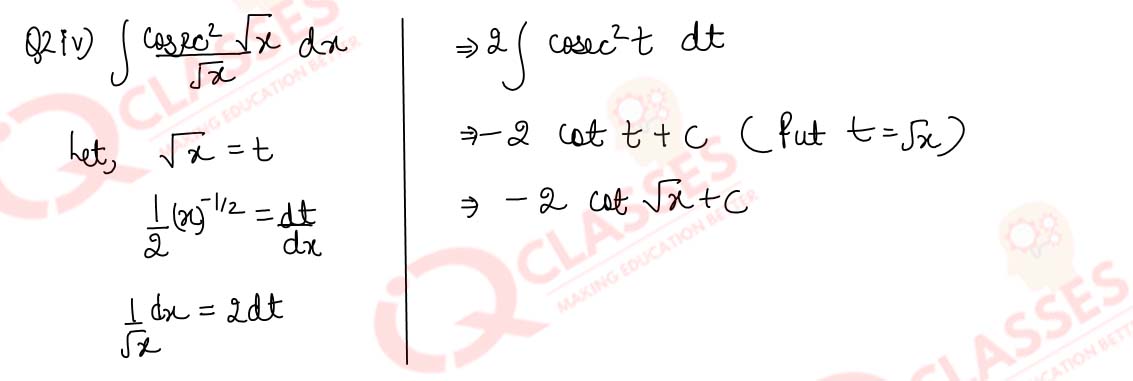 Q2 iv) ∫ cosec² √x / √x dx
Let, √x = t
1/2 (x)^-1/2 = dt/dx
1/√x dx = 2dt
⇒ 2∫ cosec² t dt
⇒ -2 cot t + C (Put t = √x)
⇒ -2 cot √x + C
IQ CLASSES
MAKING EDUCATION BETTER
IQ CLASSES
MAKING EDUCATION BETTER
LASSES
CATION BETT